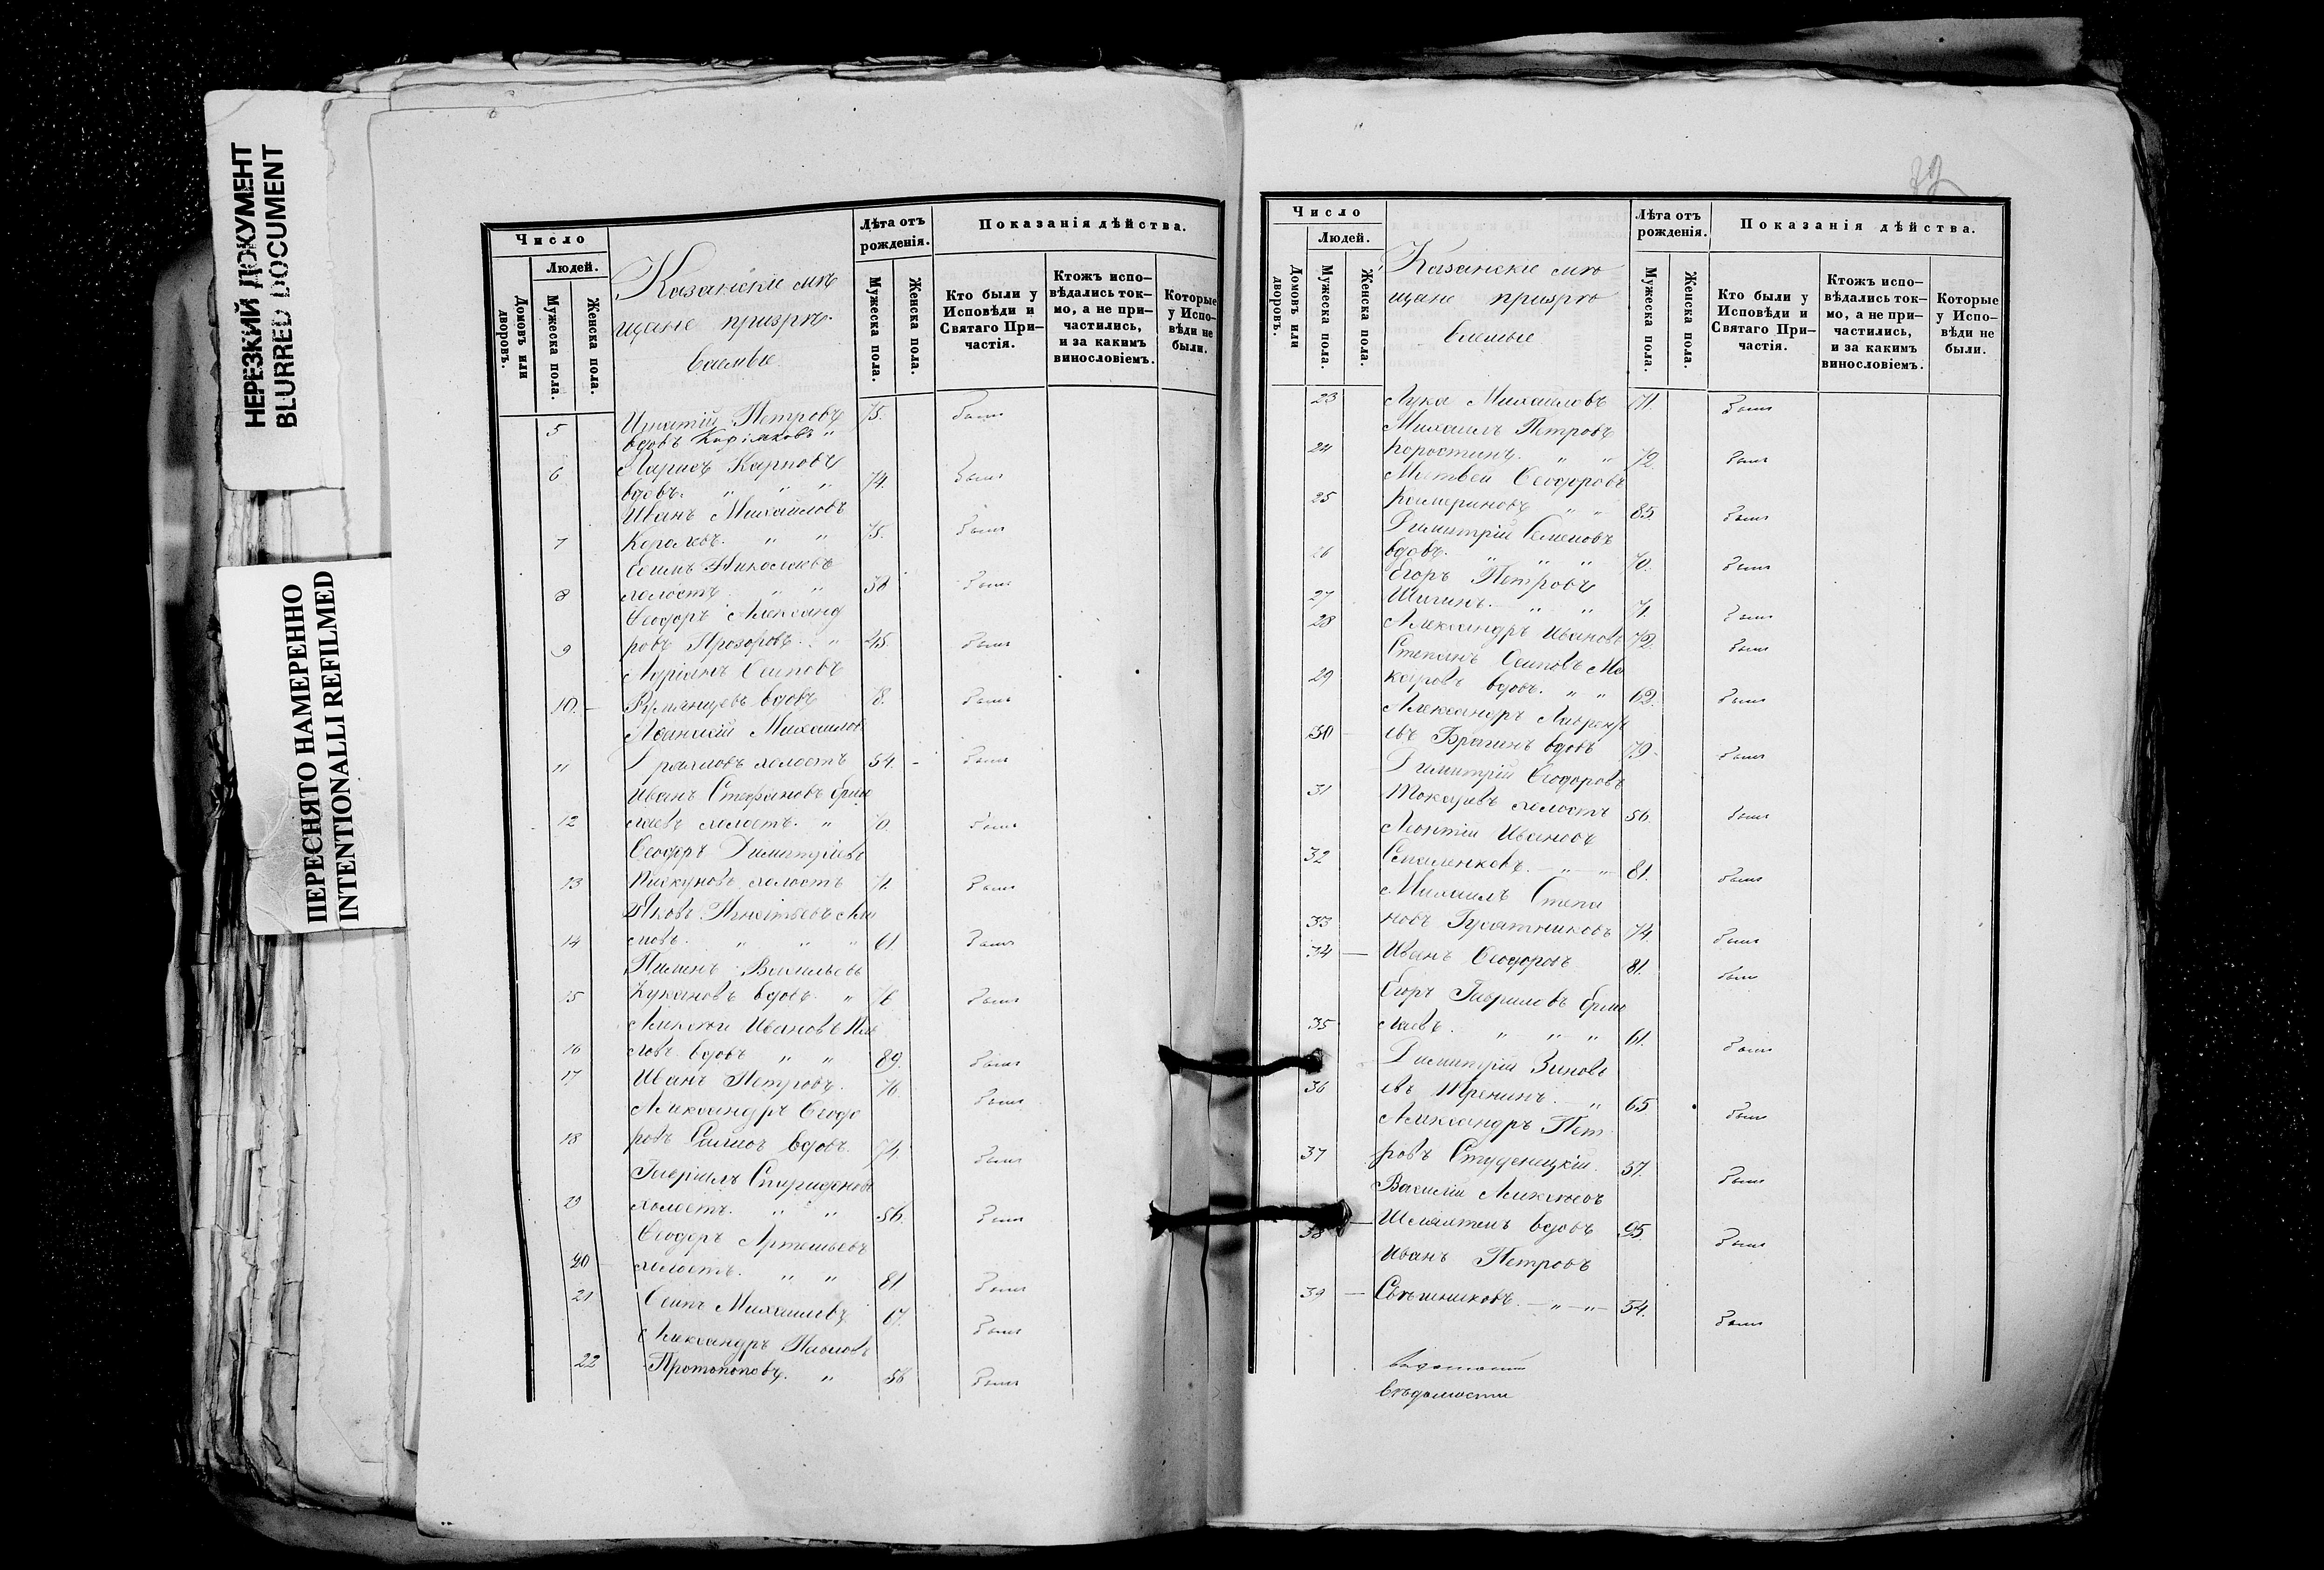 НЕРЕЗКИЙ ДОКУМЕНТ
BLURRED DOCUMENT
ПЕРЕСНЯТО НАМЕРЕННО
INTENTIONALLI REFILMED
Число
Людей.
Домовъ или дворовъ.
Мужеска пола.
Женска пола.
Казанскіе мѣ
щане призрѣ-
ваемые
Лѣта отъ
рожденія.
Мужеска пола.
Женска пола.
Показанія дѣйства.
Кто были у
Исповѣди и
Святаго При-
частія.
Ктожъ испо-
вѣдались ток-
мо, а не при-
частились,
и за какимъ
винословіемъ.
Которые
у Испо-
вѣди не
были.
5 Игнатій Петровъ 75. были
вдовъ "
6 Ларіонъ Карповъ
вдовъ. " " " 74. были
Иванъ Михайловъ
7 Королевъ. " " 75. были
Николаевъ
8 холостъ. " " 38 были
Ѳеодоръ Александ
9 ровъ Прозоровъ. " 45. были
Адріанъ Осиповъ
10. Румянцевъ вдовъ 78. были
Аѳанасій Михаилов
11 холостъ 54. были
Иванъ Стефановъ Ермо
12 лаевъ холостъ. " 70. были
Ѳеодоръ Димитріевъ
13 Пискуновъ холостъ 71. были
Яковъ Игнатьевъ
14 " " " 61. были
Пименъ Васильевъ
15 Кукановъ вдовъ. " 76 были
Алексѣй Ивановъ
16 ловъ вдовъ " " 89. были
17 Иванъ Петровъ. 76. были
Александръ Ѳеодо
18 ровъ вдовъ. 74. были
Гавріилъ Спиридоновъ
19 холостъ. " " 56. были
Ѳеодоръ Артемьевъ
20 холостъ. " " 81. были
21 Осипъ Михаиловъ 67. были
Александръ Павловъ
22 Протопоповъ. " 58 были
Число
Людей.
Домовъ или дворовъ.
Мужеска пола.
Женска пола.
Казанскіе мѣ
щане призрѣ
ваемые
Лѣта отъ
рожденія.
Мужеска пола.
Женска пола.
Показанія дѣйства.
Кто были у
Исповѣди и
Святаго При-
частія.
Ктожъ испо-
вѣдались ток-
мо, а не при-
частились,
и за какимъ
винословіемъ.
Которые
у Испо-
вѣди не
были.
23 Лука Михаиловъ 71. были
Михаилъ Петровъ
24 Коростинъ. " " 72. были
Матвей Ѳеодоровъ
25 Камериновъ " " 85. были
Димитрій Семеновъ
26 вдовъ. " " 70. были
Егоръ Петровъ
27 Шигинъ. " " 71. были
28 Александръ Ивановъ 72. были
Степанъ Осиповъ Ма
29 каровъ вдовъ. " " 62. были
Александръ Лаврент
30 евъ Брагинъ вдовъ 79 были
Димитрій Ѳеодоровъ
31 Токаревъ холостъ 56. были
Леонтій Ивановъ
32 " 81. были
Михаилъ Степа
33 новъ 74. были
34 Иванъ Ѳеодоровъ 81. были
Егоръ Гавриловъ Ермо
35 лаевъ. " " " 61. были
Димитрій Зиновь
36 евъ Тренинъ. " 65 были
Александръ Пет
37 ровъ Студенецкій. 57. были
Василій Алексѣевъ
38 вдовъ 95. были
Иванъ Петровъ
39 Свѣшниковъ. " " 54. были
вѣдомости